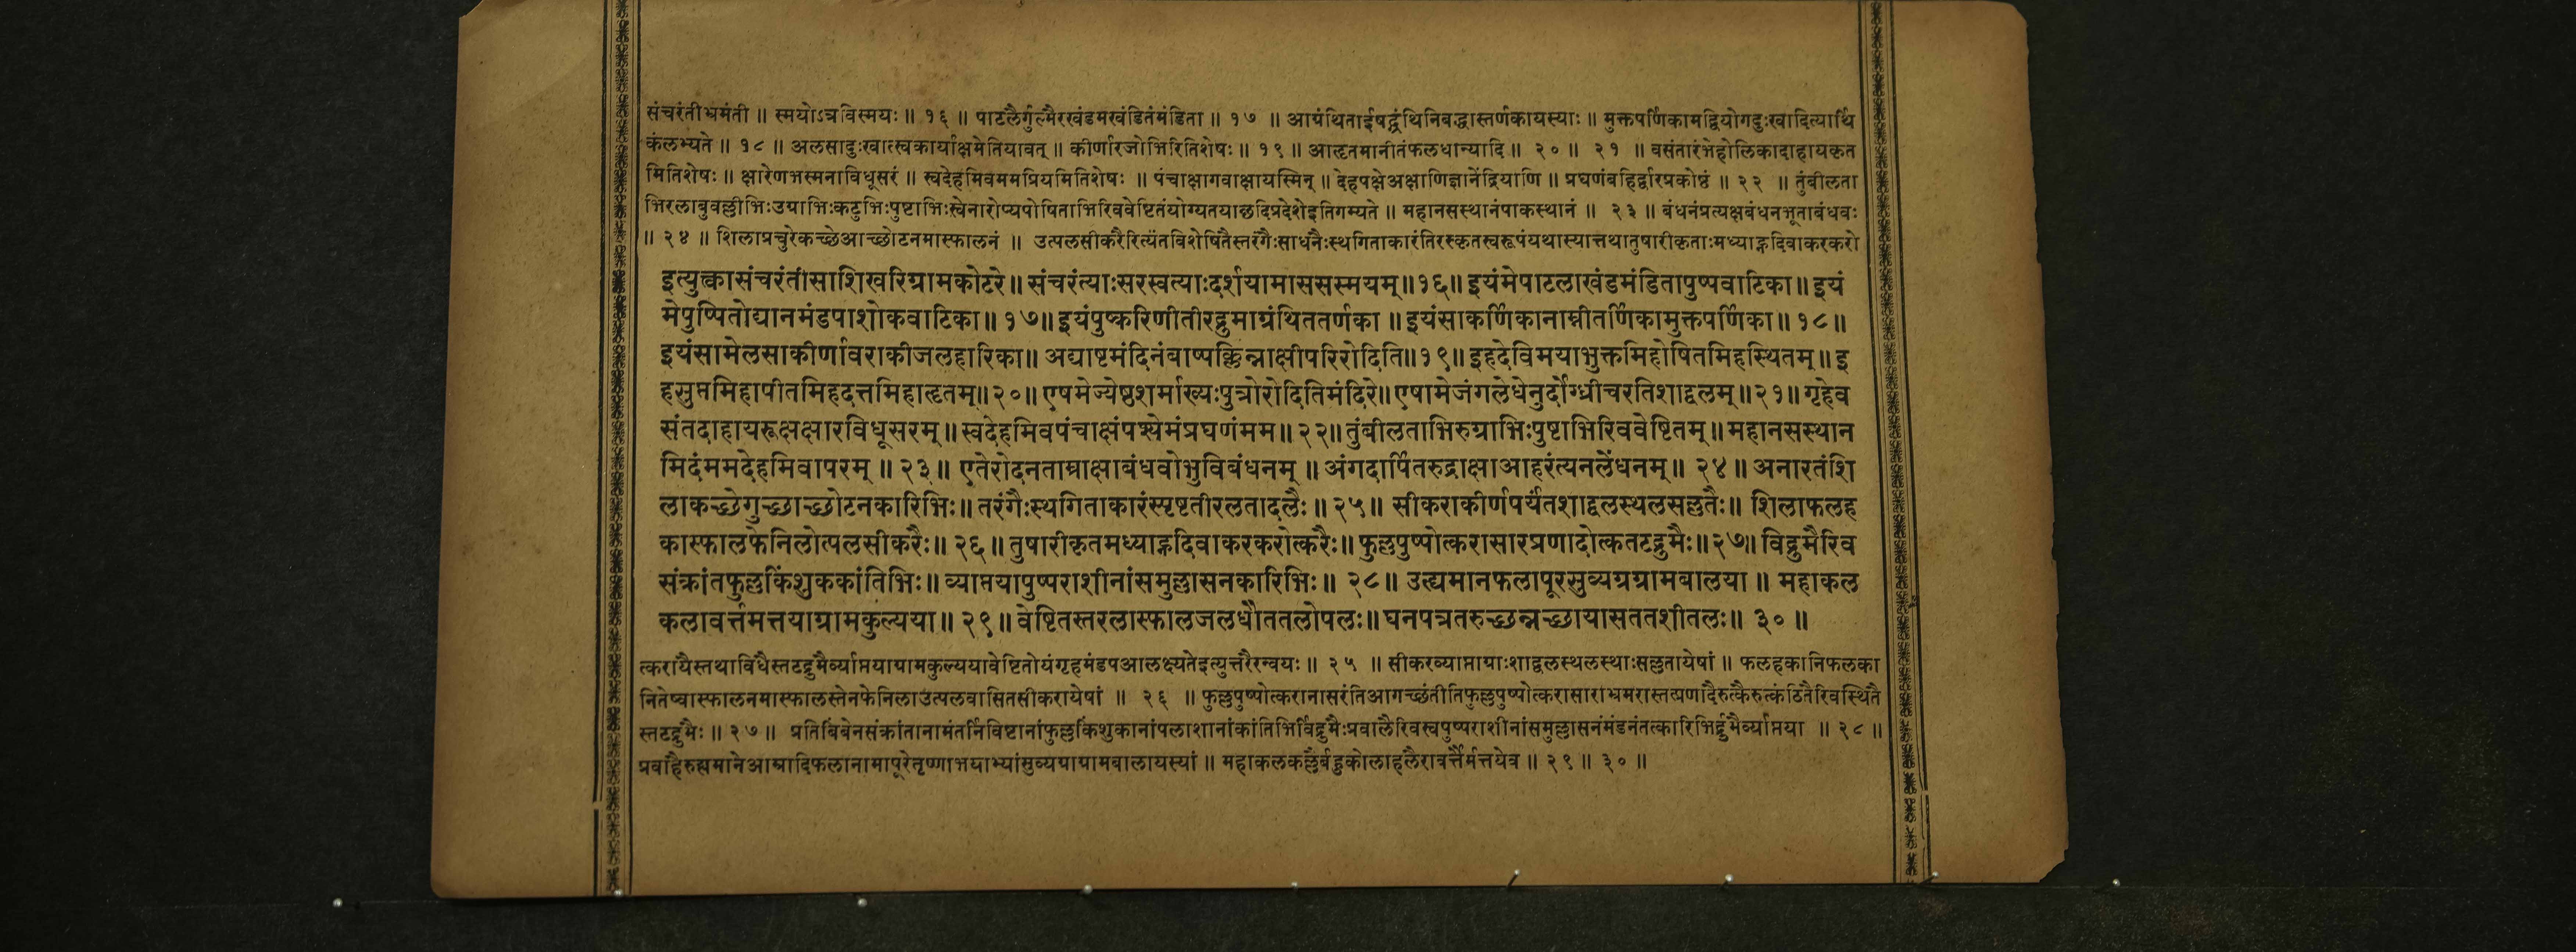 संचरंतीभ्रमंती ॥ स्मयोऽत्रविस्मयः ॥ १६ ॥ पाटलैर्गुल्मैरखंडमखंडितंमंडिता ॥ १७ ॥ आग्रंथिताईषद्ग्रंथिनिबद्धास्तर्णकायस्याः ॥ मुक्तपर्णिकामद्वियोगदुःखादित्यार्थि
कंलभ्यते ॥ १८ ॥ अलसादुःखात्स्वकार्याक्षमेतियावत् ॥ कीर्णारजोभिरितिशेषः ॥ १९ ॥ आहृतमानीतंफलधान्यादि ॥ २० ॥ २१ ॥ वसंतारंभेहोलिकादाहायकृत
मितिशेषः ॥ क्षारेणभस्मनाविधूसरं ॥ स्वदेहमिवममप्रियमितिशेषः ॥ पंचाक्षागवाक्षायस्मिन् ॥ देहपक्षेअक्षाणिज्ञानेंद्रियाणि ॥ प्रघणंबहिर्द्वारप्रकोष्ठं ॥ २२ ॥ तुंबीलता
भिरलाबुवल्लीभिःउग्राभिःकटुभिःपुष्टाभिःस्वेनारोप्यपोषिताभिरिववेष्टितंयोग्यतयाछदिप्रदेशेइतिगम्यते ॥ महानसस्थानंपाकस्थानं ॥ २३ ॥ बंधनंप्रत्यक्षबंधनभूताबंधवः
॥ २४ ॥ शिलाप्रचुरेकच्छेआच्छोटनमास्फालनं ॥ उत्पलसीकरैरित्यंतविशेषितैस्तरंगैःसाधनैःस्थगिताकारंतिरस्कृतस्वरूपंयथास्यात्तथातुषारीकृताःमध्याह्नदिवाकरकरो
इत्युक्त्वासंचरंतीसाशिखरिग्रामकोटरे॥ संचरंत्याःसरस्वत्याःदर्शयामाससस्मयम्॥१६॥ इयंमेपाटलाखंडमंडितापुष्पवाटिका॥ इयं
मेपुष्पितोद्यानमंडपाशोकवाटिका॥ १७॥ इयंपुष्करिणीतीरद्रुमाग्रंथिततर्णका ॥ इयंसाकर्णिकानाम्नीतर्णिकामुक्तपर्णिका॥ १८॥
इयंसामेलसाकीर्णावराकीजलहारिका॥ अद्याष्टमंदिनंबाष्पक्लिन्नाक्षीपरिरोदिति॥१९॥ इहदेविमयाभुक्तमिहोषितमिहस्थितम्॥ इ
हसुप्तमिहापीतमिहदत्तमिहाहृतम्॥२०॥ एषमेज्येष्ठशर्माख्यःपुत्रोरोदितिमंदिरे॥ एषामेजंगलेधेनुर्दोग्ध्रीचरतिशाद्वलम्॥२१॥ गृहेव
संतदाहायरूक्षक्षारविधूसरम्॥ स्वदेहमिवपंचाक्षंपश्येमंप्रघणंमम॥ २२॥ तुंबीलताभिरुग्राभिःपुष्टाभिरिववेष्टितम्॥ महानसस्थान
मिदंममदेहमिवापरम् ॥ २३॥ एतेरोदनताम्राक्षाबंधवोभुविबंधनम् ॥ अंगदार्पितरुद्राक्षाआहरंत्यनलेंधनम्॥ २४॥ अनारतंशि
लाकच्छेगुच्छाच्छोटनकारिभिः॥ तरंगैःस्थगिताकारंस्पृष्टतीरलतादलैः ॥ २५॥ सीकराकीर्णपर्यंतशाद्वलस्थलसल्लतैः॥ शिलाफलह
कास्फालफेनिलोत्पलसीकरैः॥ २६॥ तुषारीकृतमध्याह्नदिवाकरकरोत्करैः॥ फुल्लपुष्पोत्करासारप्रणादोत्कतटद्रुमैः॥२७॥ विद्रुमैरिव
संक्रांतफुल्लकिंशुककांतिभिः॥ व्याप्तयापुष्पराशीनांसमुल्लासनकारिभिः॥ २८॥ उह्यमानफलापूरसुव्यग्रग्रामबालया ॥ महाकल
कलावर्त्तमत्तयाग्रामकुल्यया॥ २९॥ वेष्टितस्तरलास्फालजलधौततलोपलः॥ घनपत्रतरुच्छन्नच्छायासततशीतलः॥ ३० ॥
त्करायैस्तथाविधैस्तटद्रुमैर्व्याप्तयाग्रामकुल्ययावेष्टितोयंगृहमंडपआलक्ष्यतेइत्युत्तरैरन्वयः ॥ २५ ॥ सीकरव्याप्ताग्राःशाद्वलस्थलस्थाःसल्लतायेषां ॥ फलहकानिफलका
नितेष्वास्फालनमास्फालस्तेनफेनिलाउत्पलवासितसीकरायेषां ॥ २६ ॥ फुल्लपुष्पोत्करानासरंतिआगच्छंतीतिफुल्लपुष्पोत्करासाराभ्रमरास्तत्प्रणादैरुत्कैरुत्कंठितैरिवस्थितै
स्तटद्रुमैः ॥ २७ ॥ प्रतिबिंबेनसंक्रांतानामंतर्निविष्टानांफुल्लकिंशुकानांपलाशानांकांतिभिर्विद्रुमैःप्रवालैरिवस्वपुष्पराशीनांसमुल्लासनंमंडनंतत्कारिभिर्द्रुमैर्व्याप्तया ॥ २८ ॥
प्रवाहैरुह्यमानेआम्रादिफलानामापूरेतृष्णाभयाभ्यांसुव्यग्राग्रामबालायस्यां ॥ महाकलकलैर्बहुकोलाहलैरावर्त्तैर्मत्तयेव ॥ २९ ॥ ३० ॥